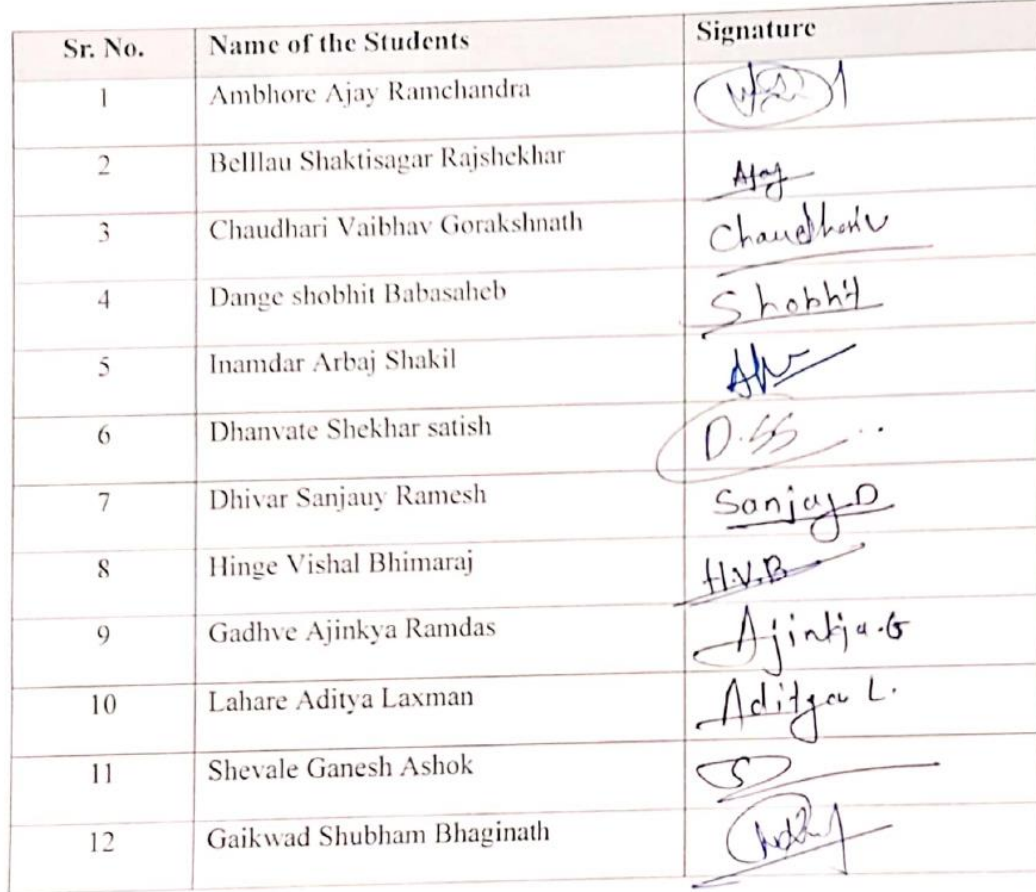 Sr. No. Name of the Students Signature
1 Ambhore Ajay Ramchandra
2 Belllau Shaktisagar Rajshekhar Ajay
3 Chaudhari Vaibhav Gorakshnath Chaudhari V
4 Dange shobhit Babasaheb Shobhit
5 Inamdar Arbaj Shakil
6 Dhanvate Shekhar satish D.SS
7 Dhivar Sanjauy Ramesh Sanjay D
8 Hinge Vishal Bhimaraj H.V.B
9 Gadhve Ajinkya Ramdas Ajinkya.G
10 Lahare Aditya Laxman Aditya L.
11 Shevale Ganesh Ashok
12 Gaikwad Shubham Bhaginath